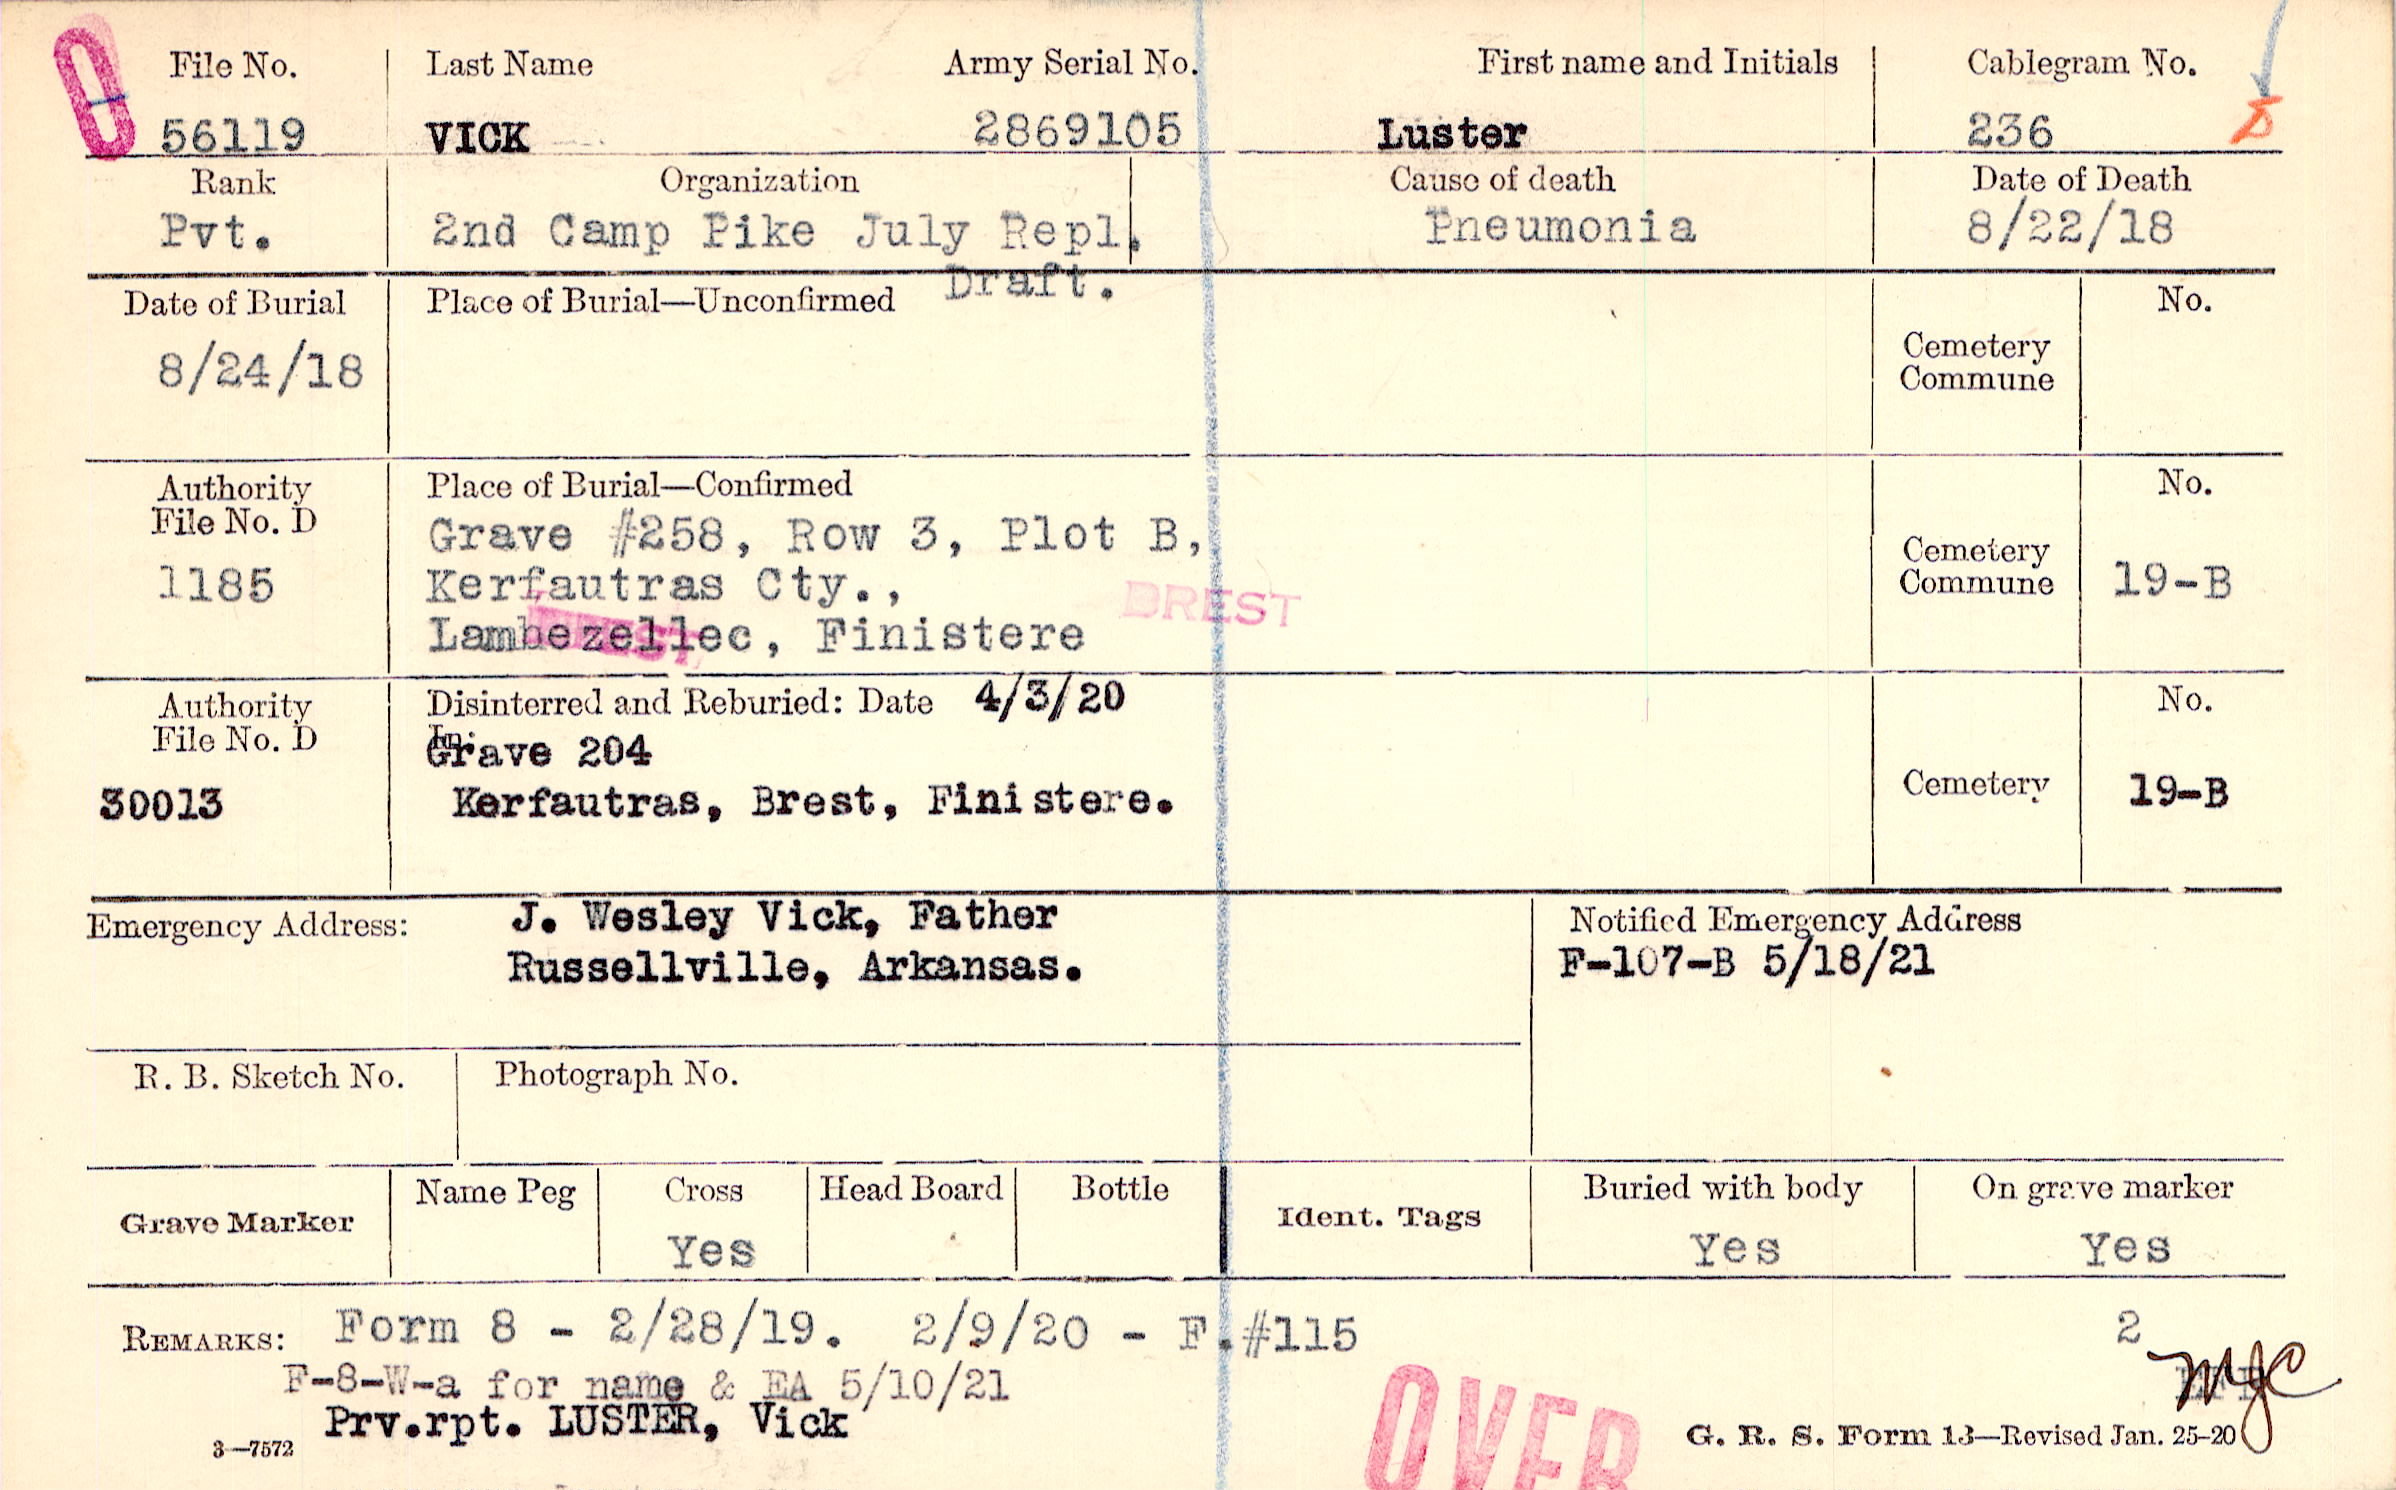 File No. Last Name Army Serial No. First name and Initials Cablegram No.
56119 VICK 2869105 Luster 236
Rank Organization Cause of death Date of Death
Pvt. 2nd Camp Pike July Repl. Pneumonia 8/22/18
Draft.
Date of Burial Place of Burial—Unconfirmed No.
8/24/18 Cemetery
Commune
Authority Place of Burial—Confirmed No.
File No. D
Grave #258, Row 3, Plot B,
1185 Kerfautras Cty., Cemetery
Commune 19-B
BREST
Lambezellec, Finistere
Authority Disinterred and Reburied: Date 4/3/20 No.
File No. D In:
Grave 204
30013 Kerfautras, Brest, Finistere. Cemetery 19-B
Emergency Address: J. Wesley Vick, Father Notified Emergency Address
Russellville, Arkansas. F-107-B 5/18/21
R. B. Sketch No. Photograph No.
Grave Marker Name Peg Cross Head Board Bottle Ident. Tags Buried with body On grave marker
Yes Yes Yes
REMARKS: Form 8 - 2/28/19. 2/9/20 - F.#115 2
F-8-W-a for name & EA 5/10/21 MJC
Prv.rpt. LUSTER, Vick
OVER
3—7572 G. R. S. Form 13—Revised Jan. 25-20